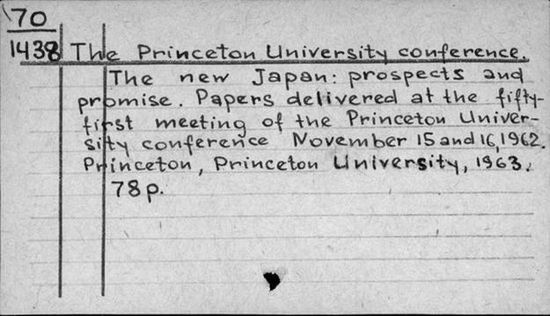 70
1438 The Princeton University conference.
The new Japan: prospects and
promise. Papers delivered at the fifty-
first meeting of the Princeton Univer-
sity conference November 15 and 16, 1962.
Princeton, Princeton University, 1963.
78 p.